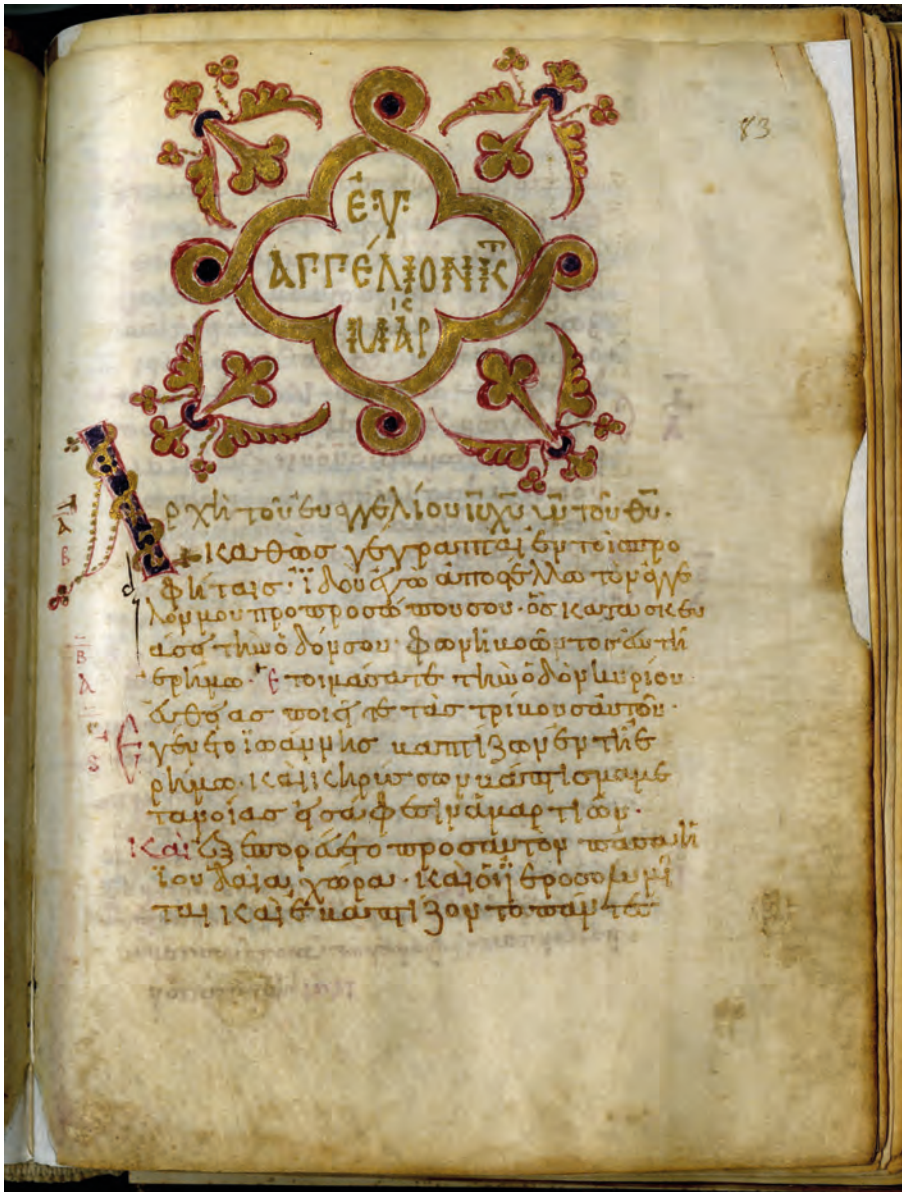 83
ἐυ
ἀγγέλιον κτ
ις
μαρ
Ἀρχὴ τοῦ εὐαγγελίου ιυ χυ υυ τοῦ θυ·
καθὼς γέγραπται ἐν τοῖς προ
φήταις· ἰδοὺ ἐγὼ ἀποστέλλω τὸν ἄγγε
λόν μου πρὸ προσώπου σου· ὃς κατασκευ
άσει τὴν ὁδόν σου· φωνὴ βοῶντος ἐν τῇ
ἐρήμω· ἑτοιμάσατε τὴν ὁδὸν κυρίου·
εὐθείας ποιεῖτε τὰς τρίβους αὐτοῦ·
Ἐγένετο ἰωάννης βαπτίζων ἐν τῇ ἐ
ρήμω· καὶ κηρύσσων βάπτισμα με
τανοίας εἰς ἄφεσιν ἁμαρτιῶν·
Καὶ ἐξεπορεύετο πρὸς αὐτὸν πᾶσα ἡ
ἰουδαία χώρα· καὶ οἱ ἱεροσολυμῖ
ται καὶ ἐβαπτίζοντο πάντες